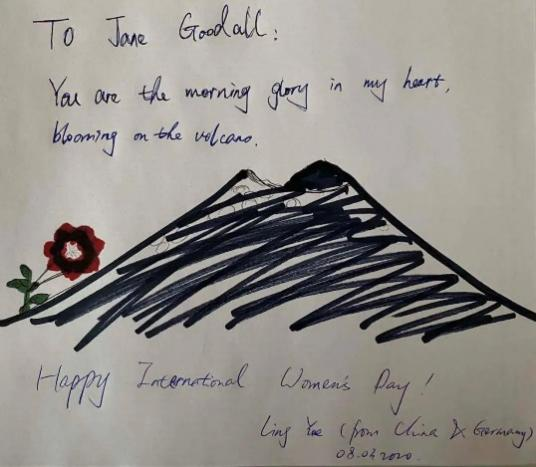 To Jane Goodall:
You are the morning glory in my heart,
blooming on the volcano.
Happy International Women's Day!
Ling Yue (from China & Germany)
08.03.2020.